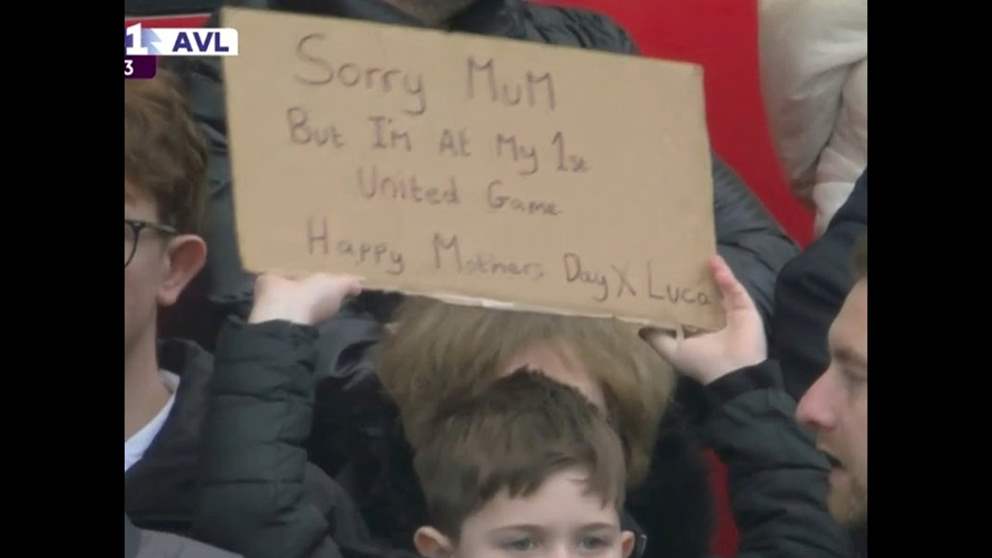 1 AVL
3
Sorry MuM
But I'm At My 1st
United Game
Happy Mothers Day X Luca